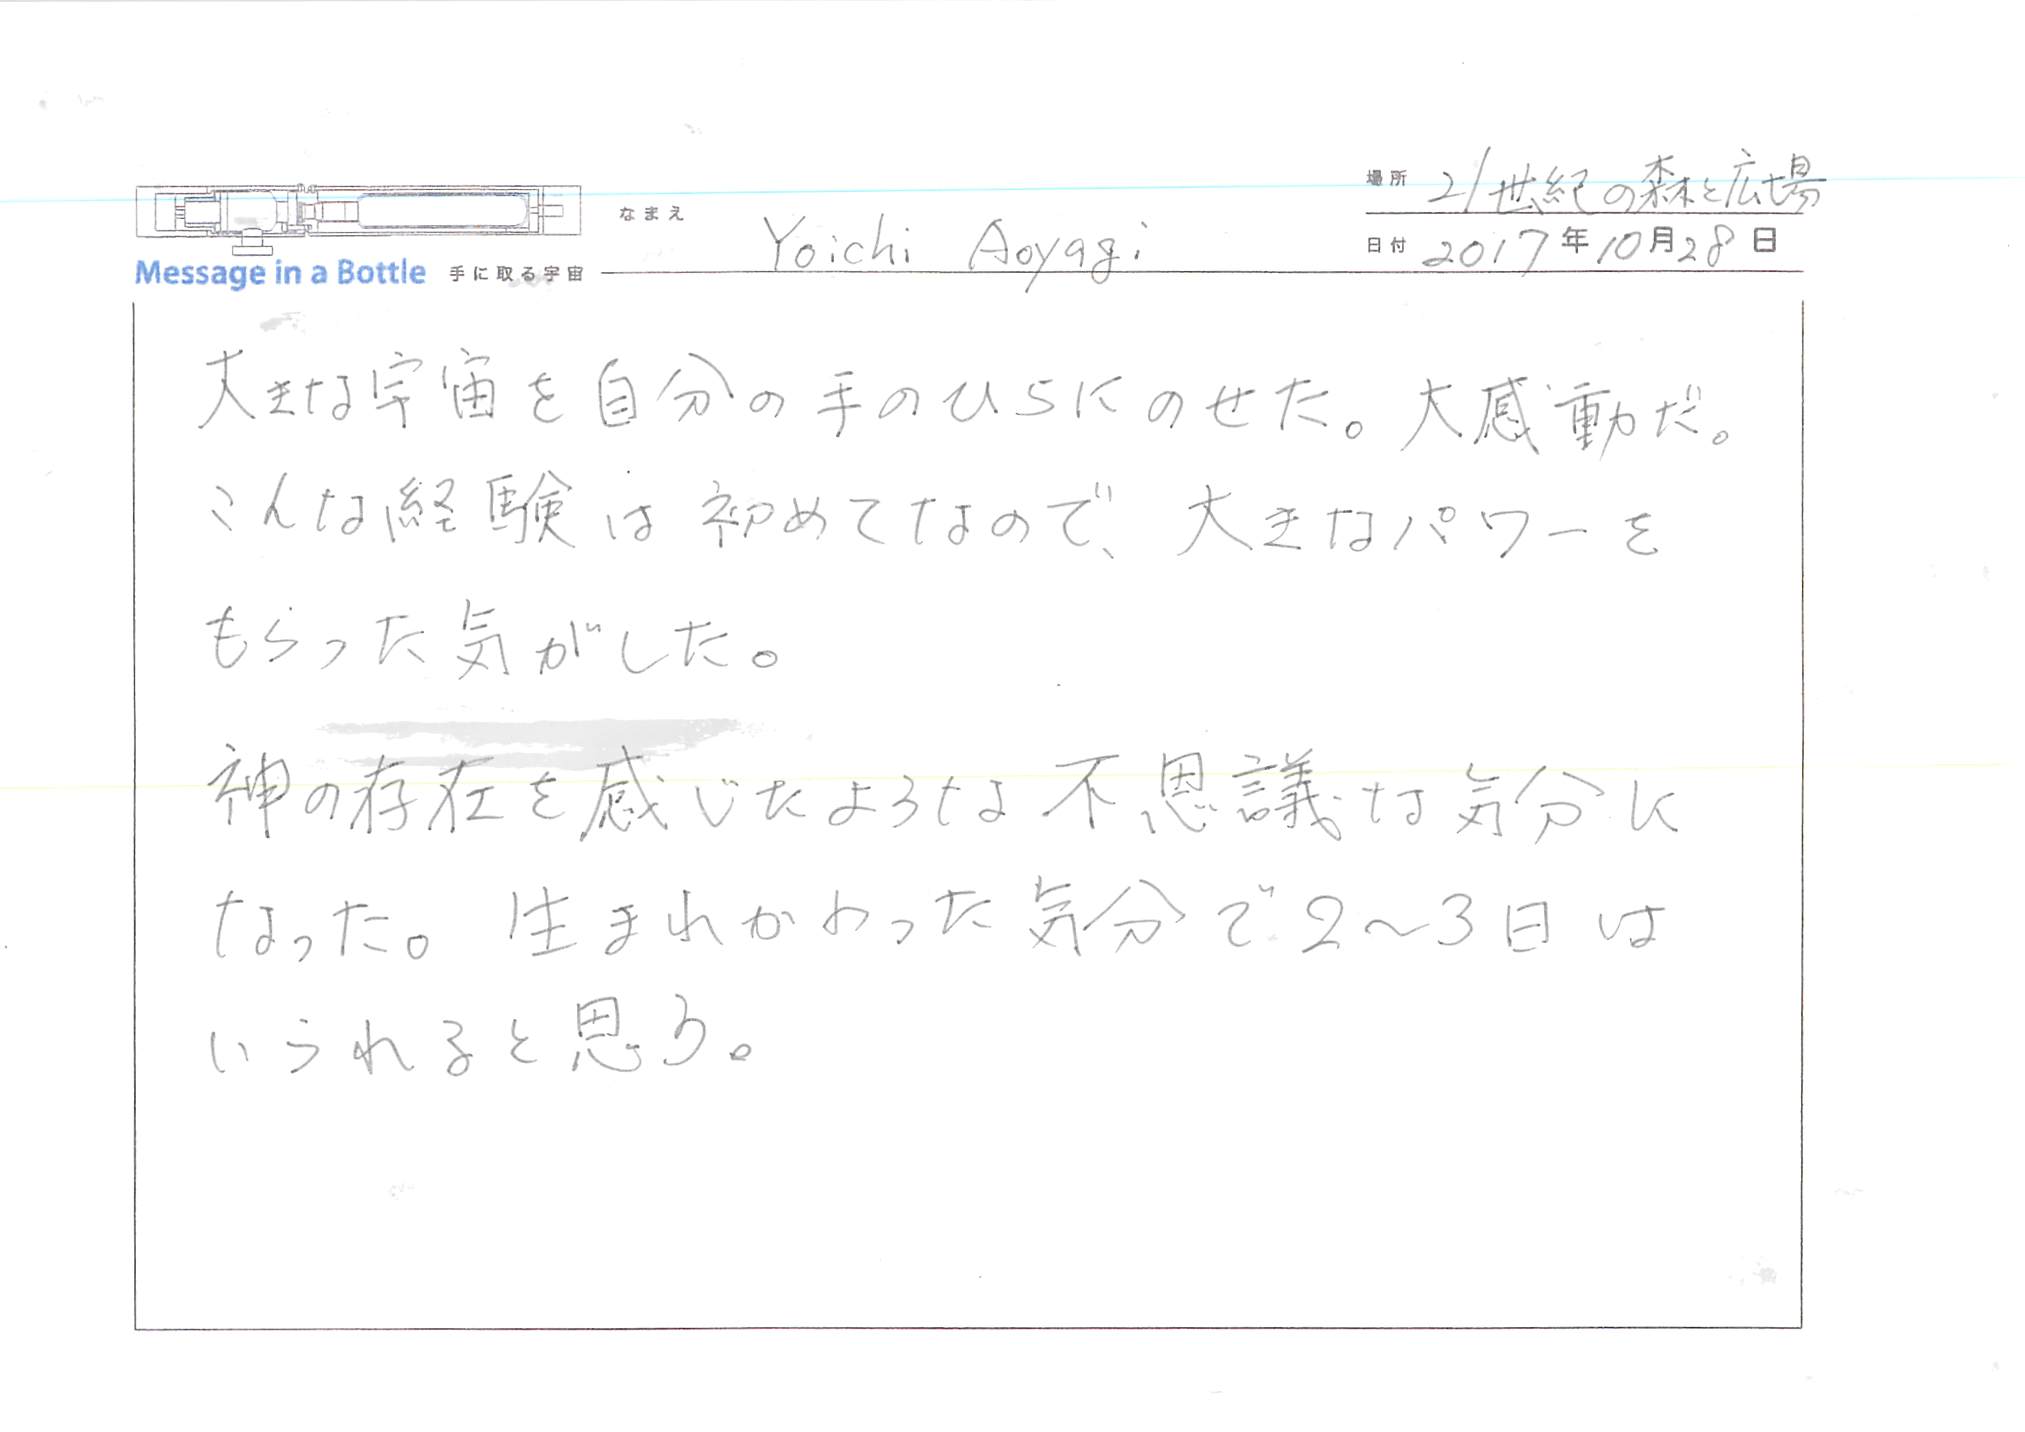 場所 21世紀の森と広場
なまえ Yoichi Aoyagi
日付 2017年10月28日
Message in a Bottle 手に取る宇宙
大きな宇宙を自分の手のひらにのせた。大感動だ。
こんな経験は初めてなので、大きなパワーを
もらった気がした。
神の存在を感じたような不思議な気分に
なった。生まれかわった気分で2〜3日は
いられると思う。